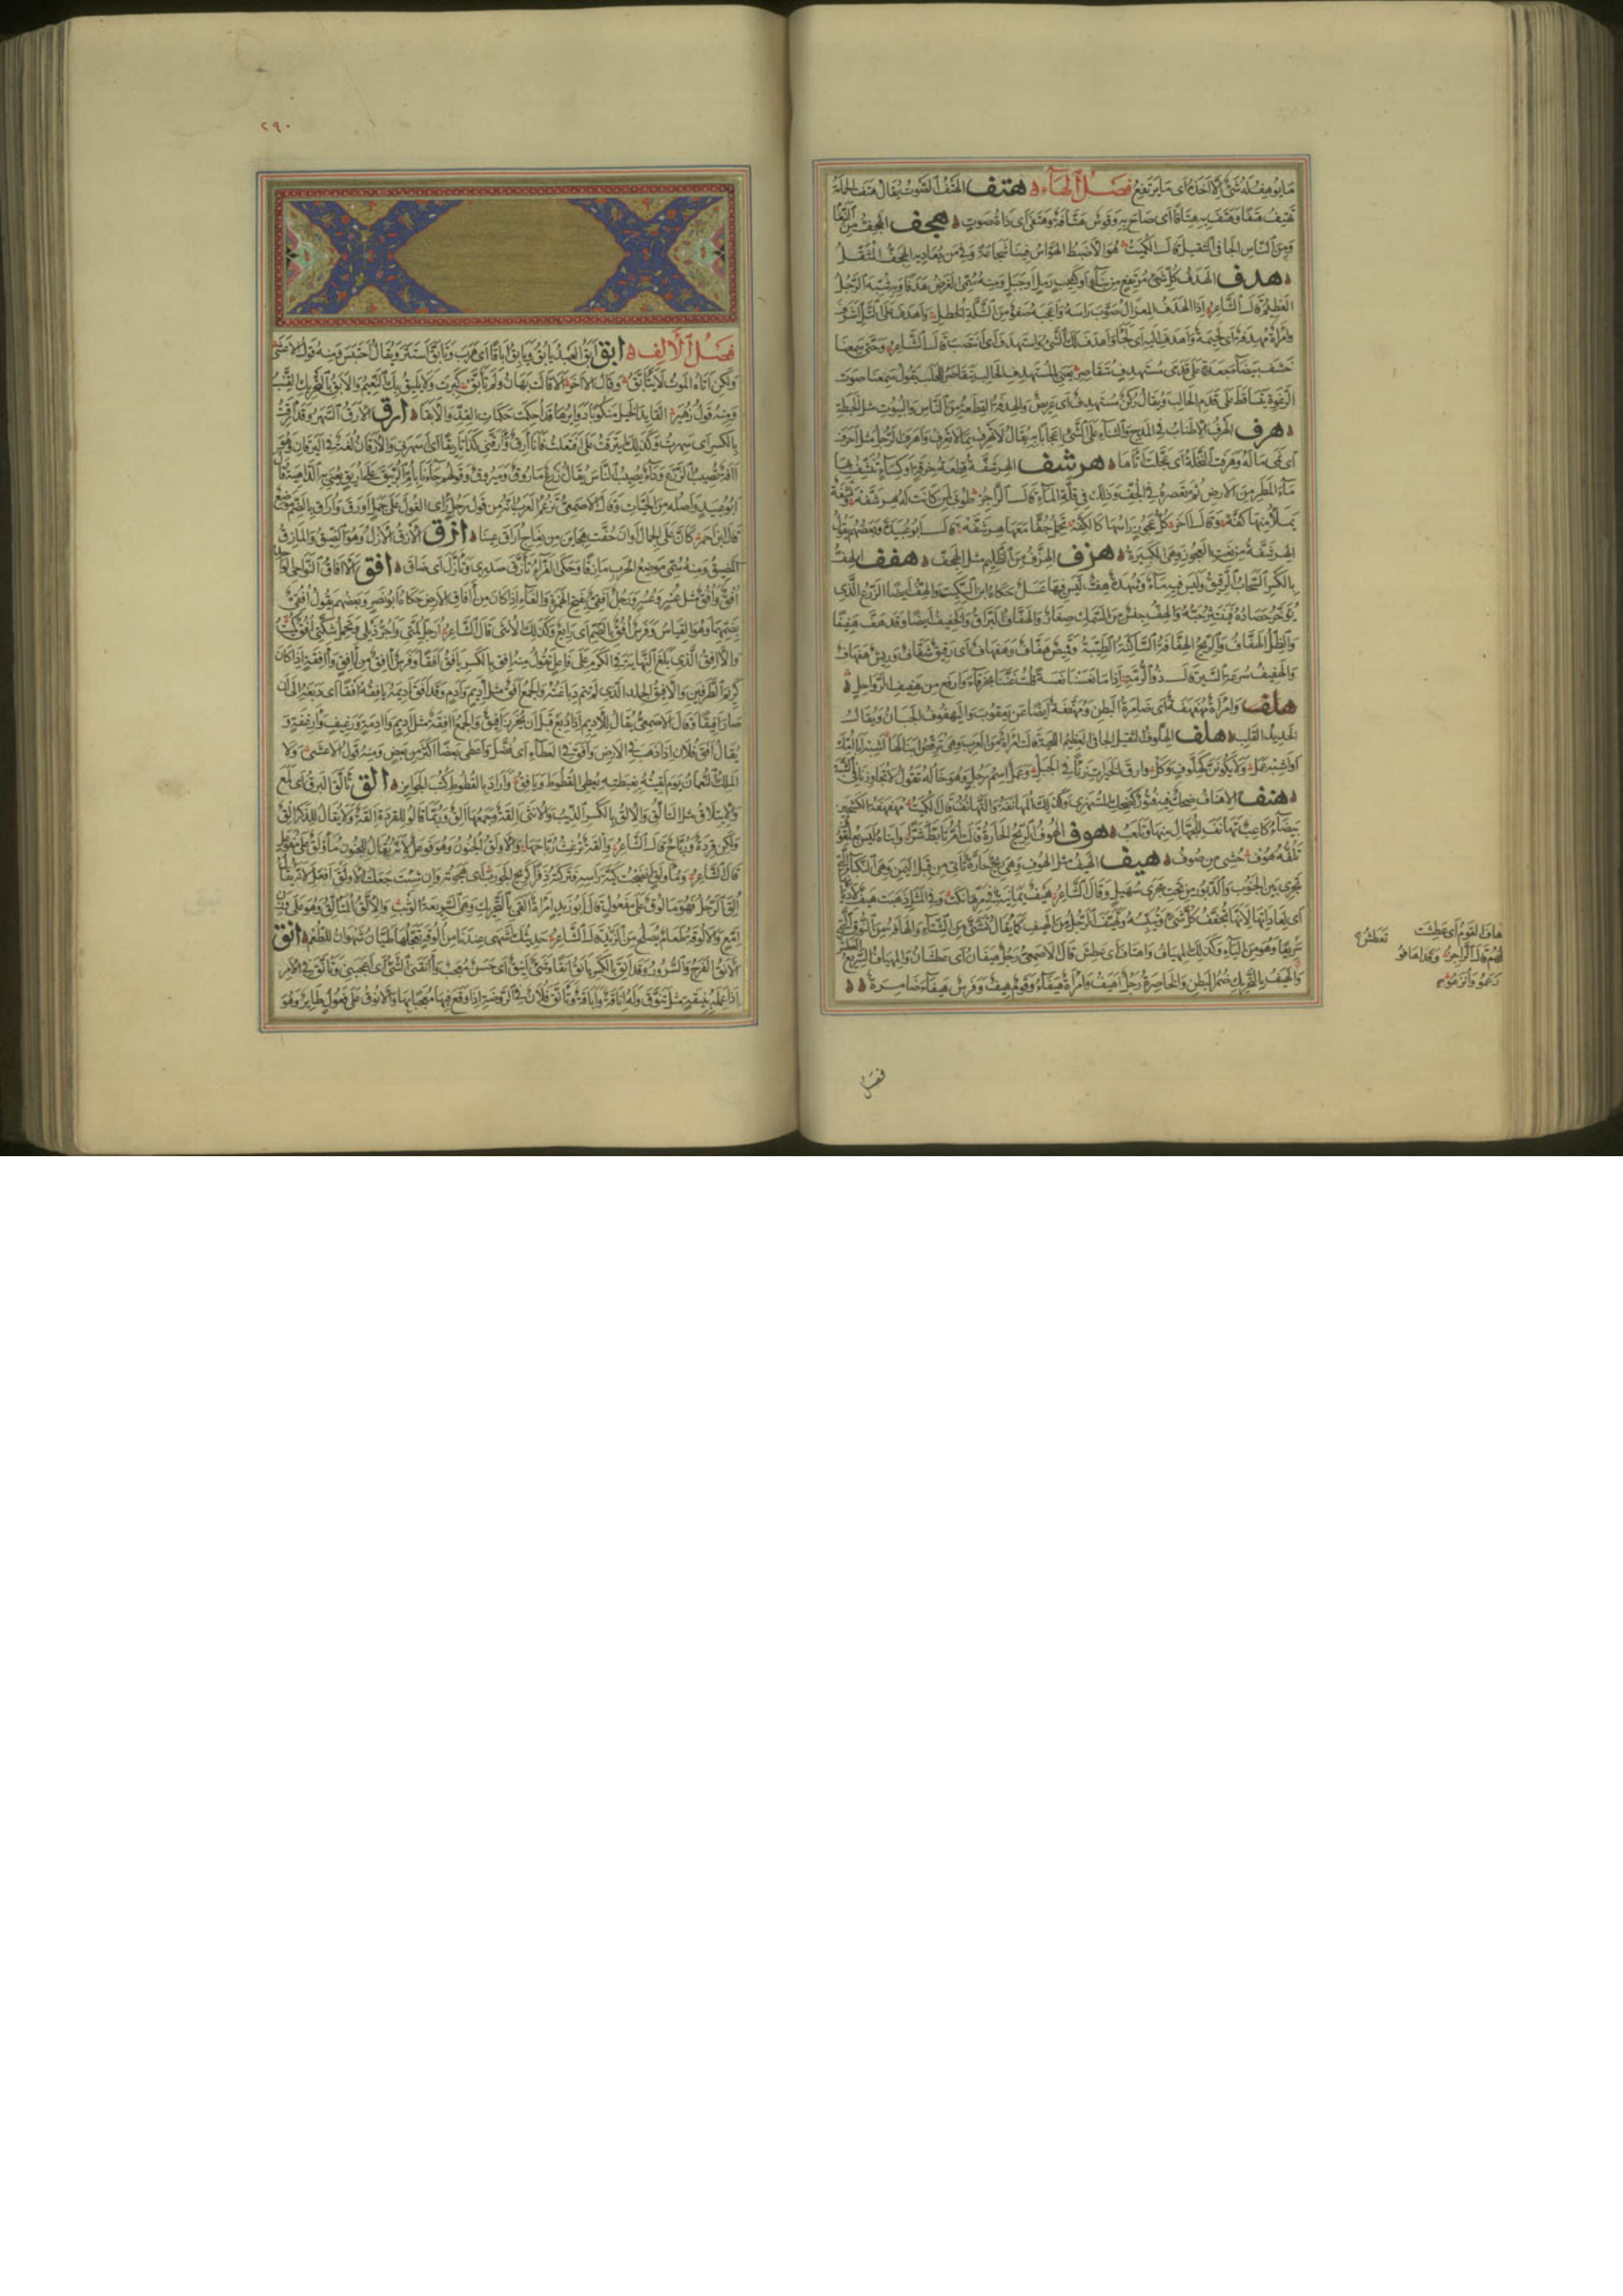 مَا يُوهِفُ لَهُ شَىْءٌ إِلَّا أَخَذَهُ أَى مَا يَرْتَفِعُ فَصْلُ الْهَاءِ هتف الْهَتْفُ الصَّوْتُ يُقَالُ هَتَفَتِ الْحَمَامَةُ
تَهْتِفُ هَتْفًا وَهَتَفَ بِهِ هِتَافًا أَى صَاحَ بِهِ وَقَوْسٌ هَتَّافَةٌ وَهَتَفَى أَى ذَاتُ صَوْتٍ هجف الْهِجَفُّ مِنَ النَّعَامِ
وَمِنَ النَّاسِ الْجَافِى الثَّقِيلُ قَالَ الْكُمَيْتُ هُوَ الْأَضْبَطُ الْهَوَّاسُ فِينَا شَجَاعَةً وَفِيمَنْ يُعَادِيهِ الْهِجَفُّ الْمُثَقَّلُ
هدف الْهَدَفُ كُلُّ شَىْءٍ مُرْتَفِعٍ مِنْ بِنَاءٍ أَوْ كَثِيبِ رَمْلٍ أَوْ جَبَلٍ وَمِنْهُ سُمِّىَ الْغَرَضُ هَدَفًا وَبِهِ شُبِّهَ الرَّجُلُ
الْعَظِيمُ قَالَ الشَّاعِرُ إِذَا الْهَدَفُ الْمِعْزَالُ صَوَّبَ رَأْسَهُ وَأَعْجَبَهُ ضَفْوٌ مِنَ الثَّلَّةِ الْخُطْلِ وَأَهْدَفَ عَلَى التَّلِّ أَشْرَفَ
وَامْرَأَةٌ مُهْدِفَةٌ أَى لَحِيمَةٌ وَأَهْدَفَ إِلَيْهِ أَى لَجَأَ وَأَهْدَفَ لَكَ الشَّىْءُ وَاسْتَهْدَفَ أَى انْتَصَبَ قَالَ الشَّاعِرُ وَحَتَّى سَمِعْنَا
خَشْفَ بَيْضَاءَ جَعْدَةٍ عَلَى قَدَمَىْ مُسْتَهْدِفٍ مُتَقَاصِرِ يَعْنِى بِالْمُسْتَهْدِفِ الْحَالِبَ يَتَقَاصَرُ لِلْحَلْبِ يَقُولُ سَمِعْنَا صَوْتَ
الرَّغْوَةِ تَتَسَاقَطُ عَلَى قَدَمِ الْحَالِبِ وَيُقَالُ رُكْنٌ مُسْتَهْدِفٌ أَى عَرِيضٌ وَالْهِدْفَةُ الْقِطْعَةُ مِنَ النَّاسِ وَالْبُيُوتِ مِثْلُ الْخِبْطَةِ
هرف الْهَرْفُ الْإِطْنَابُ فِى الْمَدْحِ وَالثَّنَاءِ عَلَى الشَّىْءِ إِعْجَابًا بِهِ يُقَالُ لَا تَهْرِفْ بِمَا لَا تَعْرِفُ وَأَهْرَفَ الرَّجُلُ مِثْلُ أَحْرَفَ
أَى نَمَى مَالُهُ وَهَرَّفَتِ النَّخْلَةُ أَى عَجَّلَتْ أَتَاءَهَا هرشف الْهِرْشَفَّةُ قِطْعَةُ خِرْقَةٍ أَوْ كِسَاءٍ يُنَشَّفُ بِهَا
مَاءُ الْمَطَرِ مِنَ الْأَرْضِ ثُمَّ تُعْصَرُ فِى الْجُفِّ وَذَلِكَ فِى قِلَّةِ الْمَاءِ قَالَ الرَّاجِزُ طُوبَى لِمَنْ كَانَتْ لَهُ هِرْشَفَّهْ وَنَشْفَةٌ
يَمْلَأُ مِنْهَا كَفَّهْ وَقَالَ آخَرُ كُلُّ عَجُوزٍ رَأْسُهَا كَالْكُفَّهْ تَحْمِلُ جُفًّا مَعَهَا هِرْشَفَّهْ قَالَ أَبُو عُبَيْدٍ وَبَعْضُهُمْ يَقُولُ
الْهِرْشَفَّةُ مِنْ نَعْتِ الْعَجُوزِ وَهِىَ الْكَبِيرَةُ هزف الْهِزَفُّ مِنَ الظَّلِيمِ مِثْلُ الْهِجَفِّ هفف الْهِفُّ
بِالْكَسْرِ السَّحَابُ الرَّقِيقُ وَلَيْسَ فِيهِ مَاءٌ وَشُهْدَةٌ هِفٌّ لَيْسَ فِيهَا عَسَلٌ حَكَاهُ ابْنُ السِّكِّيتِ وَالْهِفُّ أَيْضًا الزَّرْعُ الَّذِى
يُؤَخَّرُ حَصَادُهُ فَيَنْتَثِرُ حَبُّهُ وَالْهِفُّ جِنْسٌ مِنَ السَّمَكِ صِغَارٌ وَالْهَفَّافُ الْبَرَّاقُ وَالْهَفِيفُ أَيْضًا وَقَدْ هَفَّ هَفِيفًا
وَالظِّلُّ الْهَفَّافُ وَالرِّيحُ الْهَفَّافَةُ السَّاكِنَةُ الطَّيِّبَةُ وَقَمِيصٌ هَفَّافٌ وَهَفْهَافٌ أَى رَقِيقٌ شَفَّافٌ وَرِيشٌ هَفْهَافٌ
وَالْهَفِيفُ سُرْعَةُ السَّيْرِ قَالَ ذُو الرُّمَّةِ إِذَا مَا نَعَسْنَا نَعْسَةً قُلْتُ غَنِّنَا بِخَرْقَاءَ وَارْفَعْ مِنْ هَفِيفِ الرَّوَاحِلِ
وَامْرَأَةٌ مُهَفْهَفَةٌ أَى ضَامِرَةُ الْبَطْنِ وَمُهَفَّفَةٌ أَيْضًا عَنْ يَعْقُوبَ وَالْيَهْفُوفُ الْجَبَانُ وَيُقَالُ
الْحَدِيدُ الْقَلْبِ هلف الْهِلَّوْفُ الثَّقِيلُ الْجَافِى الْعَظِيمُ اللِّحْيَةِ قَالَتِ امْرَأَةٌ مِنَ الْعَرَبِ وَهِىَ تُرَقِّصُ ابْنًا لَهَا أَشْبِهْ أَبَا أُمِّكَ
أَوْ أَشْبِهْ عَمَلْ وَلَا تَكُونَنَّ كَهِلَّوْفٍ وَكَلْ وَارْقَ إِلَى الْخَيْرَاتِ زَنْأً فِى الْجَبَلْ وَعَمَلٌ اسْمُ رَجُلٍ وَهُوَ خَالُهُ تَقُولُ لَا تُجَاوِزْنَا فِى الشَّبَهِ
هنف الْإِهْنَافُ ضِحْكٌ فِيهِ فُتُورٌ كَضِحْكِ الْمُسْتَهْزِئِ وَكَذَلِكَ الْمُهَانَفَةُ وَالتَّهَانُفُ قَالَ الْكُمَيْتُ مُهَفْهَفَةُ الْكَشْحَيْنِ
بَيْضَاءُ كَاعِبٌ تَهَانَفُ لِلْجُهَّالِ مِنْهَا وَتَلْعَبُ هوف الْهُوفُ الرِّيحُ الْحَارَّةُ قَالَتْ أُمُّ تَأَبَّطَ شَرًّا وَابْنَاهُ لَيْسَ بِعُلْفُوفٍ
تَلُفُّهُ هُوفٌ حُشِىَ مِنْ صُوفٍ هيف الْهَيْفُ مِثْلُ الْهُوفِ وَهِىَ رِيحٌ حَارَّةٌ تَأْتِى مِنْ قِبَلِ الْيَمَنِ وَهِىَ النَّكْبَاءُ الَّتِى
تَجْرِى بَيْنَ الْجَنُوبِ وَالدَّبُورِ مِنْ تَحْتِ مَجْرَى سُهَيْلٍ وَقَالَ الشَّاعِرُ هَيْفٌ يَمَانِيَةٌ فِى مَرِّهَا نَكَبُ وَفِى الْمَثَلِ ذَهَبَتْ هَيْفٌ لِأَدْيَانِهَا
أَى لِعَادَاتِهَا لِأَنَّهَا تُجَفِّفُ كُلَّ شَىْءٍ وَتُيَبِّسُهُ وَتَهَيَّفَ الرَّجُلُ مِنَ الْهَيْفِ كَمَا يُقَالُ تَشَتَّى مِنَ الشِّتَاءِ
وَكَذَلِكَ الْمِهْيَافُ وَاهْتَافَ أَى عَطِشَ قَالَ الْأَصْمَعِىُّ رَجُلٌ هَيْفَانُ أَى عَطْشَانُ وَالْمِهْيَافُ السَّرِيعُ الْعَطَشِ
وَالْهَيَفُ بِالتَّحْرِيكِ ضُمْرُ الْبَطْنِ وَالْخَاصِرَةِ رَجُلٌ أَهْيَفُ وَامْرَأَةٌ هَيْفَاءُ وَقَوْمٌ هِيفٌ وَفَرَسٌ هَيْفَاءُ ضَامِرَةٌ
هَافَ الْقَوْمُ أَى عَطِشَتْ
قَالَ الرَّاجِزُ وَقَدْ هَافُوا
فصل
٢٩٠
فَصْلُ الْأَلِفِ ابق أَبَقَ الْعَبْدُ يَأْبِقُ وَيَأْبُقُ إِبَاقًا أَى هَرَبَ وَتَأَبَّقَ اسْتَتَرَ وَيُقَالُ احْتَبَسَ وَمِنْهُ قَوْلُ الْأَعْشَى
وَلَكِنْ أَتَاهُ الْمَوْتُ لَا يَتَأَبَّقُ وَقَالَ الْآخَرُ أَلَا قَالَتْ بَهَانِ وَلَمْ تَأَبَّقْ كَبِرْتَ وَلَا يَلِيقُ بِكَ النَّعِيمُ وَالْأَبَقُ بِالتَّحْرِيكِ الْقِنَّبُ
وَمِنْهُ قَوْلُ زُهَيْرٍ الْقَائِدُ الْخَيْلَ مَنْكُوبًا دَوَابِرُهَا قَدْ أُحْكِمَتْ حَكَمَاتِ الْقِدِّ وَالْأَبَقَا ارق الْأَرَقُ السَّهَرُ وَقَدْ أَرِقْتُ
بِالْكَسْرِ أَى سَهِرْتُ وَكَذَلِكَ ائْتَرَقْتُ عَلَى افْتَعَلْتُ فَأَنَا أَرِقٌ وَأَرَّقَنِى كَذَا تَأْرِيقًا أَى أَسْهَرَنِى وَالْأَرَقَانُ لُغَةٌ فِى الْيَرَقَانِ وَهُوَ
آفَةٌ تُصِيبُ الزَّرْعَ وَدَاءٌ يُصِيبُ النَّاسَ يُقَالُ زَرْعٌ مَأْرُوقٌ وَمَيْرُوقٌ وَقَوْلُهُمْ جَاءَنَا بِأُمِّ الرُّبَيْقِ عَلَى أُرَيْقٍ يُعْنَى بِهِ الدَّاهِيَةُ قَالَ
أَبُو عُبَيْدٍ وَأَصْلُهُ مِنَ الْحَيَّاتِ وَقَالَ الْأَصْمَعِىُّ تَزْعُمُ الْعَرَبُ أَنَّهُ مِنْ قَوْلِ رَجُلٍ رَأَى الْغُولَ عَلَى جَمَلٍ أَوْرَقَ وَأُرَاقٌ بِالضَّمِّ مَوْضِعٌ
قَالَ ابْنُ أَحْمَرَ كَأَنَّ عَلَى الْجِمَالِ أَوَانَ حُفَّتْ هَجَائِنَ مِنْ نِعَاجِ أُرَاقَ عِينَا ازق الْأَزْقُ الْأَزْلُ وَهُوَ الضِّيقُ وَالْمَأْزِقُ
الْمَضِيقُ وَمِنْهُ سُمِّىَ مَوْضِعُ الْحَرْبِ مَأْزِقًا وَحَكَى الْفَرَّاءُ تَأَزَّقَ صَدْرِى وَتَأَزَّلَ أَى ضَاقَ افق الْآفَاقُ النَّوَاحِى الْوَاحِدُ
أُفُقٌ وَأُفْقٌ مِثْلُ عُسُرٍ وَعُسْرٍ وَرَجُلٌ أَفَقِىٌّ بِفَتْحِ الْهَمْزَةِ وَالْفَاءِ إِذَا كَانَ مِنْ آفَاقِ الْأَرْضِ حَكَاهُ أَبُو نَصْرٍ وَبَعْضُهُمْ يَقُولُ أُفُقِىٌّ
بِضَمِّهِمَا وَهُوَ الْقِيَاسُ وَفَرَسٌ أُفُقٌ بِالضَّمِّ أَى رَائِعٌ وَكَذَلِكَ الْأُنْثَى قَالَ الشَّاعِرُ أُرَجِّلُ لِمَّتِى وَأَجُرُّ ذَيْلِى وَتَحْمِلُ شِكَّتِى أُفُقٌ كُمَيْتُ
وَالْآفِقُ الَّذِى بَلَغَ النِّهَايَةَ فِى الْكَرَمِ عَلَى فَاعِلٍ تَقُولُ مِنْهُ أَفِقَ بِالْكَسْرِ يَأْفَقُ أَفَقًا وَفَرَسٌ آفِقٌ مِنْ آفِقٍ وَآفِقَةٍ إِذَا كَانَ
كَرِيمَ الطَّرَفَيْنِ وَالْأَفِيقُ الْجِلْدُ الَّذِى لَمْ يَتِمَّ دِبَاغَتُهُ وَالْجَمْعُ أَفَقٌ مِثْلُ أَدِيمٍ وَأَدَمٍ وَقَدْ أَفَقَ أَدِيمَهُ يَأْفِقُهُ أَفْقًا أَى دَبَغَهُ إِلَى أَنْ
صَارَ أَفِيقًا وَقَالَ الْأَصْمَعِىُّ يُقَالُ لِلْأَدِيمِ إِذَا دُبِغَ قَبْلَ أَنْ يُخْرَزَ أَفِيقٌ وَالْجَمْعُ آفِقَةٌ مِثْلُ أَدِيمٍ وَآدِمَةٍ وَرَغِيفٍ وَأَرْغِفَةٍ وَ
يُقَالُ أَفَقَ فُلَانٌ إِذَا ذَهَبَ فِى الْأَرْضِ وَأَفَقَ فِى الْعَطَاءِ أَى فَضَّلَ وَأَعْطَى بَعْضًا أَكْثَرَ مِنْ بَعْضٍ وَمِنْهُ قَوْلُ الْأَعْشَى وَلَا
الْمَلِكُ النُّعْمَانُ يَوْمَ لَقِيتُهُ بِغِبْطَتِهِ يُعْطِى الْقُطُوطَ وَيَأْفِقُ وَأَرَادَ بِالْقُطُوطِ كُتُبَ الْجَوَائِزِ الق تَأَلَّقَ الْبَرْقُ أَى لَمَعَ
وَالِائْتِلَاقُ مِثْلُ التَّأَلُّقِ وَالْإِلْقُ بِالْكَسْرِ الذِّئْبُ وَالْأُنْثَى إِلْقَةٌ وَجَمْعُهَا إِلَقٌ وَرُبَّمَا قَالُوا لِلْقِرَدَةِ إِلْقَةٌ وَلَا يُقَالُ لِلذَّكَرِ إِلْقٌ
وَلَكِنْ قِرْدٌ وَرُبَّاحٌ قَالَ الشَّاعِرُ وَإِلْقَةٌ تُرْغِثُ رُبَّاحَهَا وَالْأَوْلَقُ الْجُنُونُ وَهُوَ فَوْعَلٌ لِأَنَّهُ يُقَالُ لِلْمَجْنُونِ مُأَوْلَقٌ عَلَى مُفَوْعَلٍ
قَالَ الشَّاعِرُ وَمُأَوْلَقٍ أَنْضَجْتُ كَيَّةَ رَأْسِهِ فَتَرَكْتُهُ ذَفِرًا كَرِيحِ الْجَوْرَبِ أَى هَجَوْتُهُ وَإِنْ شِئْتَ جَعَلْتَ الْأَوْلَقَ أَفْعَلَ لِأَنَّهُ يُقَالُ
أُلِقَ الرَّجُلُ فَهُوَ مَأْلُوقٌ عَلَى مَفْعُولٍ قَالَ أَبُو زَيْدٍ امْرَأَةٌ أَلَقَى بِالتَّحْرِيكِ وَهِىَ السَّرِيعَةُ الْوَثْبِ وَالْإِلَّقُ الْمُتَأَلِّقُ وَهُوَ عَلَى وَزْنِ
إِمَّعٍ وَالْأَلُوقَةُ طَعَامٌ يُصْلَحُ مِنَ الزُّبْدِ قَالَ الشَّاعِرُ حَدِيثُكِ أَشْهَى عِنْدَنَا مِنْ أَلُوقَةٍ تَعَجَّلَهَا ظَمْآنُ شَهْوَانُ لِلطُّعْمِ انق
الْأَنَقُ الْفَرَحُ وَالسُّرُورُ وَقَدْ أَنِقَ بِالْكَسْرِ يَأْنَقُ أَنَقًا وَشَىْءٌ أَنِيقٌ أَى حَسَنٌ مُعْجِبٌ وَآنَقَنِى الشَّىْءُ أَى أَعْجَبَنِى وَتَأَنَّقَ فِى الْأَمْرِ
إِذَا عَمِلَهُ بِنِيقَةٍ مِثْلُ تَنَوَّقَ وَلَهُ أَنَاقَةٌ وَلَبَاقَةٌ وَتَأَنَّقَ فُلَانٌ فِى الرَّوْضَةِ إِذَا وَقَعَ فِيهَا مُعْجَبًا بِهَا وَالْأَنُوقُ عَلَى فَعُولٍ طَائِرٌ وَهُوَ